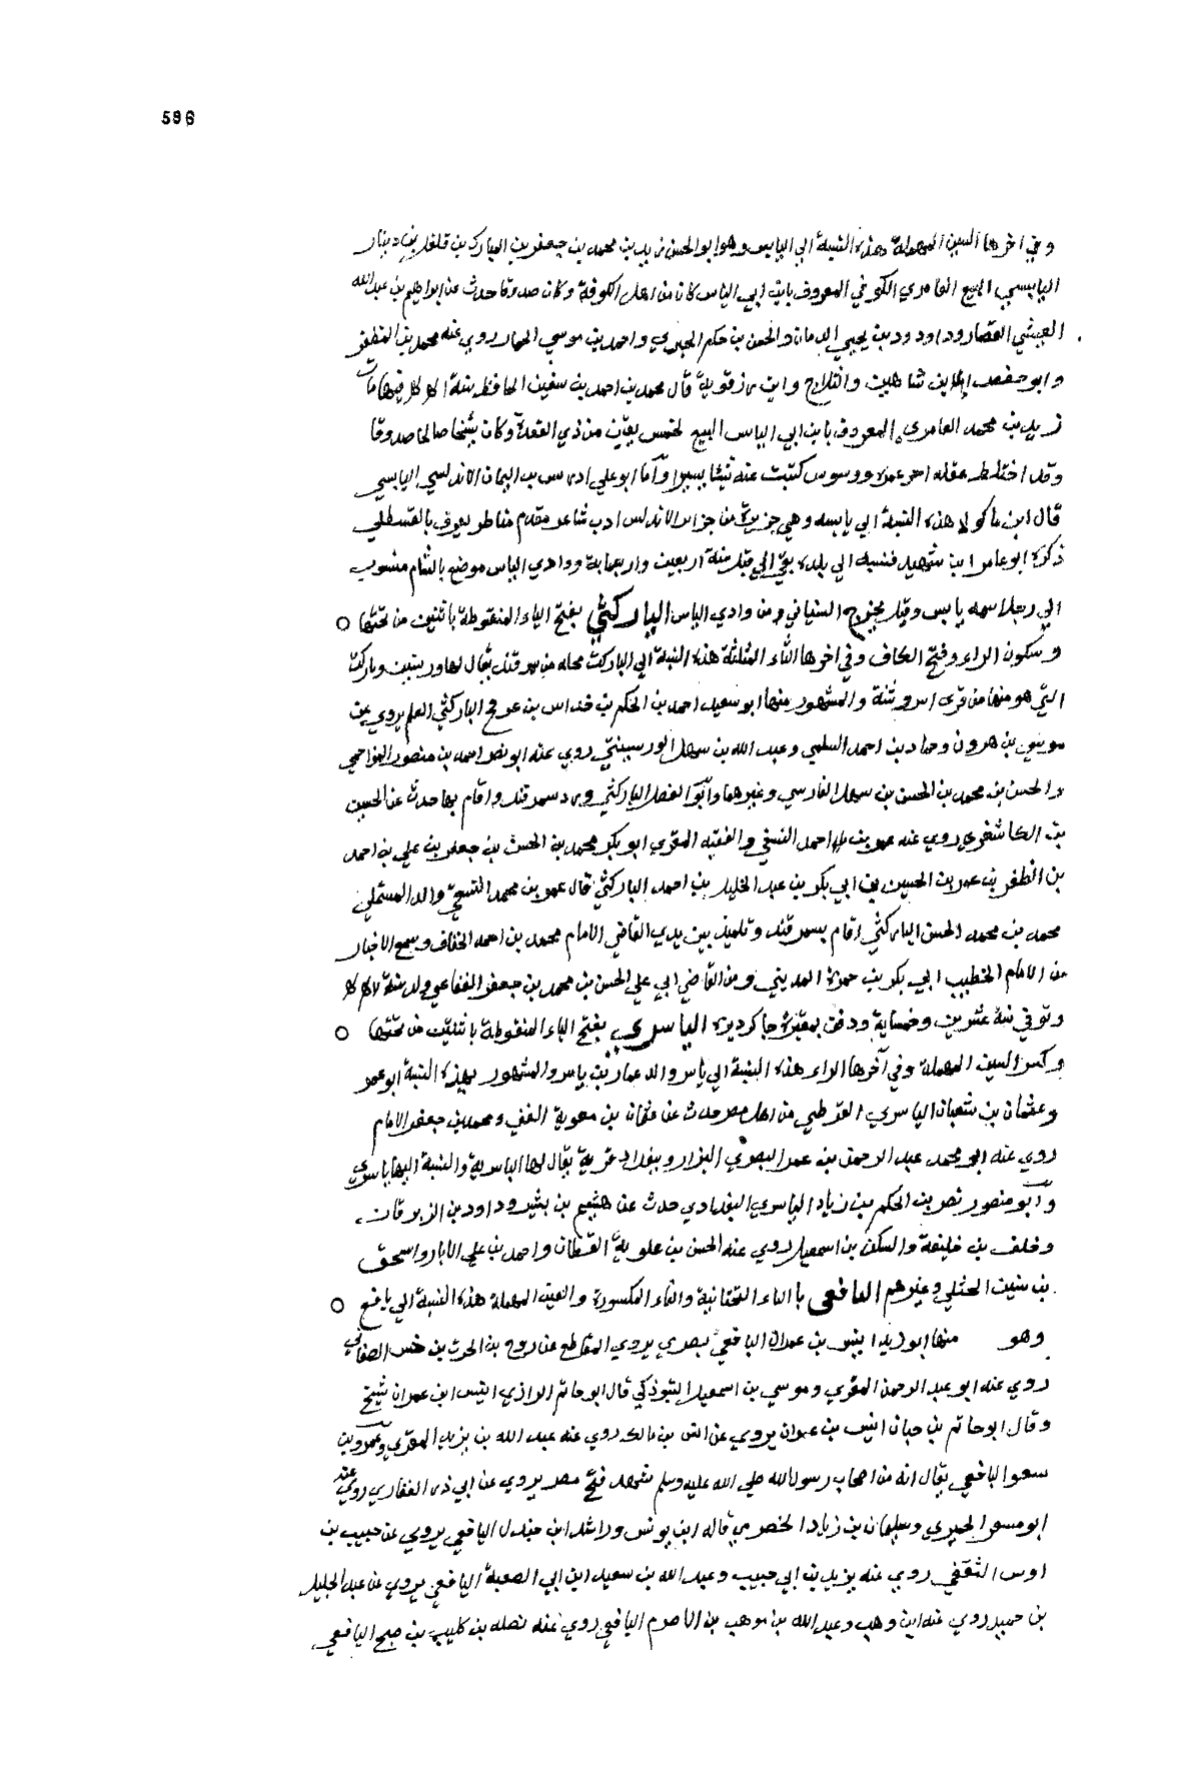 596
وفي اخرها السين المهملة هذه النسبة الي الياس وهو ابو الحسن زيد بن محمد بن جعفر بن المبارك بن فلفل بن دينار
اليابسي البيع العامري الكوفي المعروف بابن ابي الياس كان من اهل الكوفة وكان صدوقا حدث عن ابراهيم بن عبد الله
العبسي القصار وداود بن يحيي الدهقان والحسن بن حكم الحبري واحمد بن موسي الحمار روي عنه محمد بن المظفر
وابو حفص بن شاهين والثلاج وابن رزقويه قال محمد بن احمد بن سفين الحافظ سنة فيها مات
زيد بن محمد العامري المعروف بابن ابي الياس البيع لخمس بقين من ذي القعدة وكان شيخا صالحا صدوقا
وقد اختلط عقله اخر عمره ووسوس كتبت عنه شيئا يسيرا واما ابو علي ادريس بن اليمان الاندلسي اليابسي
قال ابن ماكولا هذه النسبة الي يابسه وهي جزيرة من جزاير الاندلس اديب شاعر مقدم مناظر يعرف بالقسطلي
ذكره ابو عامر ابن شهيد فنسبه الي بلده بقي الي قبل سنة اربعين واربعماية ووادي الياس موضع بالشام منسوب
الي رجل اسمه يابس وقيل يخرج السفياني من وادي الياس الياركثي بفتح الياء المنقوطة باثنتين من تحتها ○
وسكون الراء وفتح الكاف وفي اخرها الثاء المثلثة هذه النسبة الي ياركث محله من سمرقند يقال لها ورسنين وياركث
التي هو منها من قري اسروشنة والمشهور منها ابو سعيد احمد بن الحكم بن خداس بن عرفج الياركثي المعلم يروي عن
موسي بن هرون وحماد بن احمد السلمي وعبد الله بن سهل الورسنيني روي عنه ابو نصر احمد بن منصور المزاحمي
والحسن بن محمد بن الحسن بن سهل الفارسي وغيرهما وابو الفضل الياركثي ورد سمرقند واقام بها حدث عن الحسين
بن الكاشغري روي عنه عمر بن احمد النسفي والفقيه المقري ابو بكر محمد بن الحسن بن جعفر بن علي بن احمد
بن المظفر بن عمر بن الحسين بن ابي بكر بن عبد الخليل بن احمد الياركثي قال عمر بن محمد النسفي والد المستملي
محمد بن محمد الحسن الياركثي اقام بسمرقند وتلميذ بين يدي القاضي الامام محمد بن احمد الخلاف وسمع الاخبار
من الامام الخطيب ابي بكر بن حمزة المديني ومن القاضي ابي علي الحسن بن محمد بن جعفر ولد سنة
وتوفي سنة عشرين وخمساية ودفن بمقبرة جاكرديزه الياسري بفتح الياء المنقوطة باثنتين من تحتها ○
وكسر السين المهملة وفي آخرها الراء هذه النسبة الي ياسر والد عمار بن ياسر والمشهور بهذه النسبة ابو عمر
وعثمان بن شعبان الياسري القرطي من اهل مصر حدث عن عثمان بن معوية ومحمد بن جعفر الامام
روي عنه ابو محمد عبد الرحمن بن عمر المصري البزار وببغداد قرية يقال لها الياسرية والنسبة اليها ياسري
وابو منصور نصر بن الحكم بن زياد الياسري البغدادي حدث عن هشيم بن بشير وداود بن الزبرقان
وخلف بن خليفة والسكن بن اسمعيل روي عنه الحسن بن علويه القطان واحمد بن علي الابار واسحق
بن سنين الختلي وغيرهم اليافعي بالياء التحتانية والفاء المكسورة والعين المهملة هذه النسبة الي يافع ○
وهو منها ابو زيد انيس بن عمران اليافعي بصري يروي المقاطع عن روح بن الحرث بن حنش الصنعاني
روي عنه ابو عبد الرحمن المقري وموسي بن اسمعيل التبوذكي قال ابو حاتم الرازي انيس ابن عمران شيخ
وقال ابو حاتم بن حبان انيس بن عمران يروي عن انس بن مالك روي عنه عبد الله بن يزيد المقري وعمرو بن
سعوا اليافعي يقال انه من اصحاب رسول الله صلي الله عليه وسلم شهد فتح مصر يروي عن ابي ذر الغفاري روي عنه
ابو الحميري وسليمان بن زياد الحضرمي قاله ابن يونس وراشد ابن جندل اليافعي يروي عن حبيب بن
اوس الثقفي روي عنه يزيد بن ابي حبيب وعبد الله بن سعيد ابن ابي الصعبة اليافعي يروي عن عبد الجليل
بن حميد روي عنه ابن وهب وعبد الله بن موهب بن الاصرم اليافعي روي عنه فضله بن كليب بن صبح اليافعي